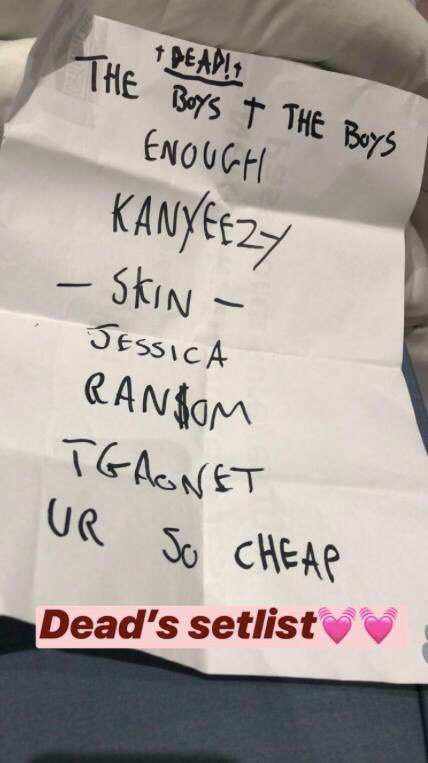 †DEAD!†
THE BOYS † THE BOYS
ENOUGH
KANYEEZY
- SKIN -
JESSICA
RAN$OM
TGAONET
UR SO CHEAP
Dead's setlist💓💓